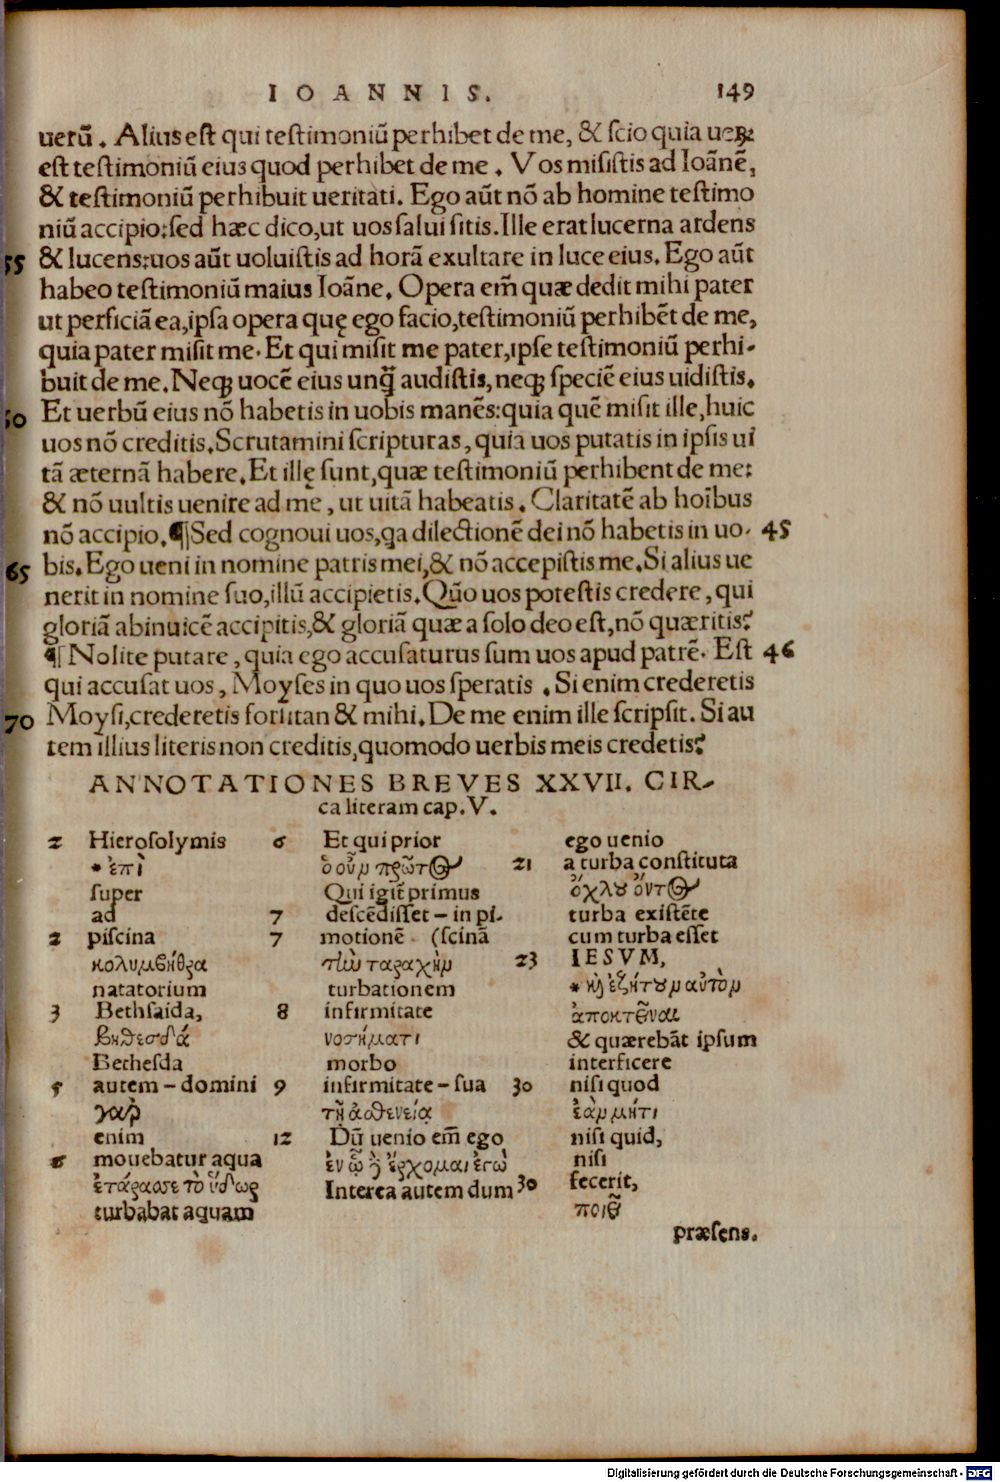 IOANNIS. 149
uerũ. Alius est qui testimoniũ perhibet de me, & scio quia uerꝫ
est testimoniũ eius quod perhibet de me. Vos misistis ad Ioãnẽ,
& testimoniũ perhibuit ueritati. Ego aũt nõ ab homine testimo
niũ accipio: sed hæc dico, ut uos salui sitis. Ille erat lucerna ardens
55 & lucens: uos aũt uoluistis ad horã exultare in luce eius. Ego aũt
habeo testimoniũ maius Ioãne. Opera em̃ quæ dedit mihi pater
ut perficiã ea, ipsa opera quę ego facio, testimoniũ perhibẽt de me,
quia pater misit me. Et qui misit me pater, ipse testimoniũ perhi-
buit de me. Neqꝫ uocẽ eius unq̃ audistis, neqꝫ speciẽ eius uidistis.
60 Et uerbũ eius nõ habetis in uobis manẽs: quia quẽ misit ille, huic
uos nõ creditis. Scrutamini scripturas, quia uos putatis in ipsis ui
tã æternã habere. Et illę sunt, quæ testimoniũ perhibent de me:
& nõ uultis uenire ad me, ut uitã habeatis. Claritatẽ ab hoĩbus
nõ accipio. ¶ Sed cognoui uos, qa dilectionẽ dei nõ habetis in uo- 45
65 bis. Ego ueni in nomine patris mei, & nõ accepistis me. Si alius ue
nerit in nomine suo, illũ accipietis. Quõ uos potestis credere, qui
gloriã abinuicẽ accipitis, & gloriã quæ a solo deo est, nõ quæritis?
¶ Nolite putare, quia ego accusaturus sum uos apud patrẽ. Est 46
qui accusat uos, Moyses in quo uos speratis. Si enim crederetis
70 Moysi, crederetis forsitan & mihi. De me enim ille scripsit. Si au
tem illius literis non creditis, quomodo uerbis meis credetis?
ANNOTATIONES BREVES XXVII. CIR-
ca literam cap. V.
2 Hierosolymis
* ἐπὶ
super
ad
2 piscina
κολυμβήθρα
natatorium
3 Bethsaida,
βηθεσδά
Bethesda
5 autem - domini
γὰρ
enim
6 mouebatur aqua
ἐτάρασσε τὸ ὕδωρ
turbabat aquam
6 Et qui prior
ὁ οὖν πρῶτος
Qui igit̃ primus
7 descẽdisset - in pi-
7 motionẽ (scinã
τὴν ταραχὴν
turbationem
8 infirmitate
νοσήματι
morbo
9 infirmitate - sua
τῇ ἀσθενείᾳ
12 Dũ uenio em̃ ego
ἐν ᾧ δὲ ἔρχομαι ἐγὼ
Interea autem dum
ego uenio
21 a turba constituta
ὄχλου ὄντος
turba existẽte
cum turba esset
23 IESVM,
* καὶ ἐζήτουν αὐτὸν
ἀποκτεῖναι
& quærebãt ipsum
interficere
30 nisi quod
ἐὰν μήτι
nisi quid,
nisi
30 fecerit,
ποιεῖ
præsens.
Digitalisierung gefördert durch die Deutsche Forschungsgemeinschaft - DFG